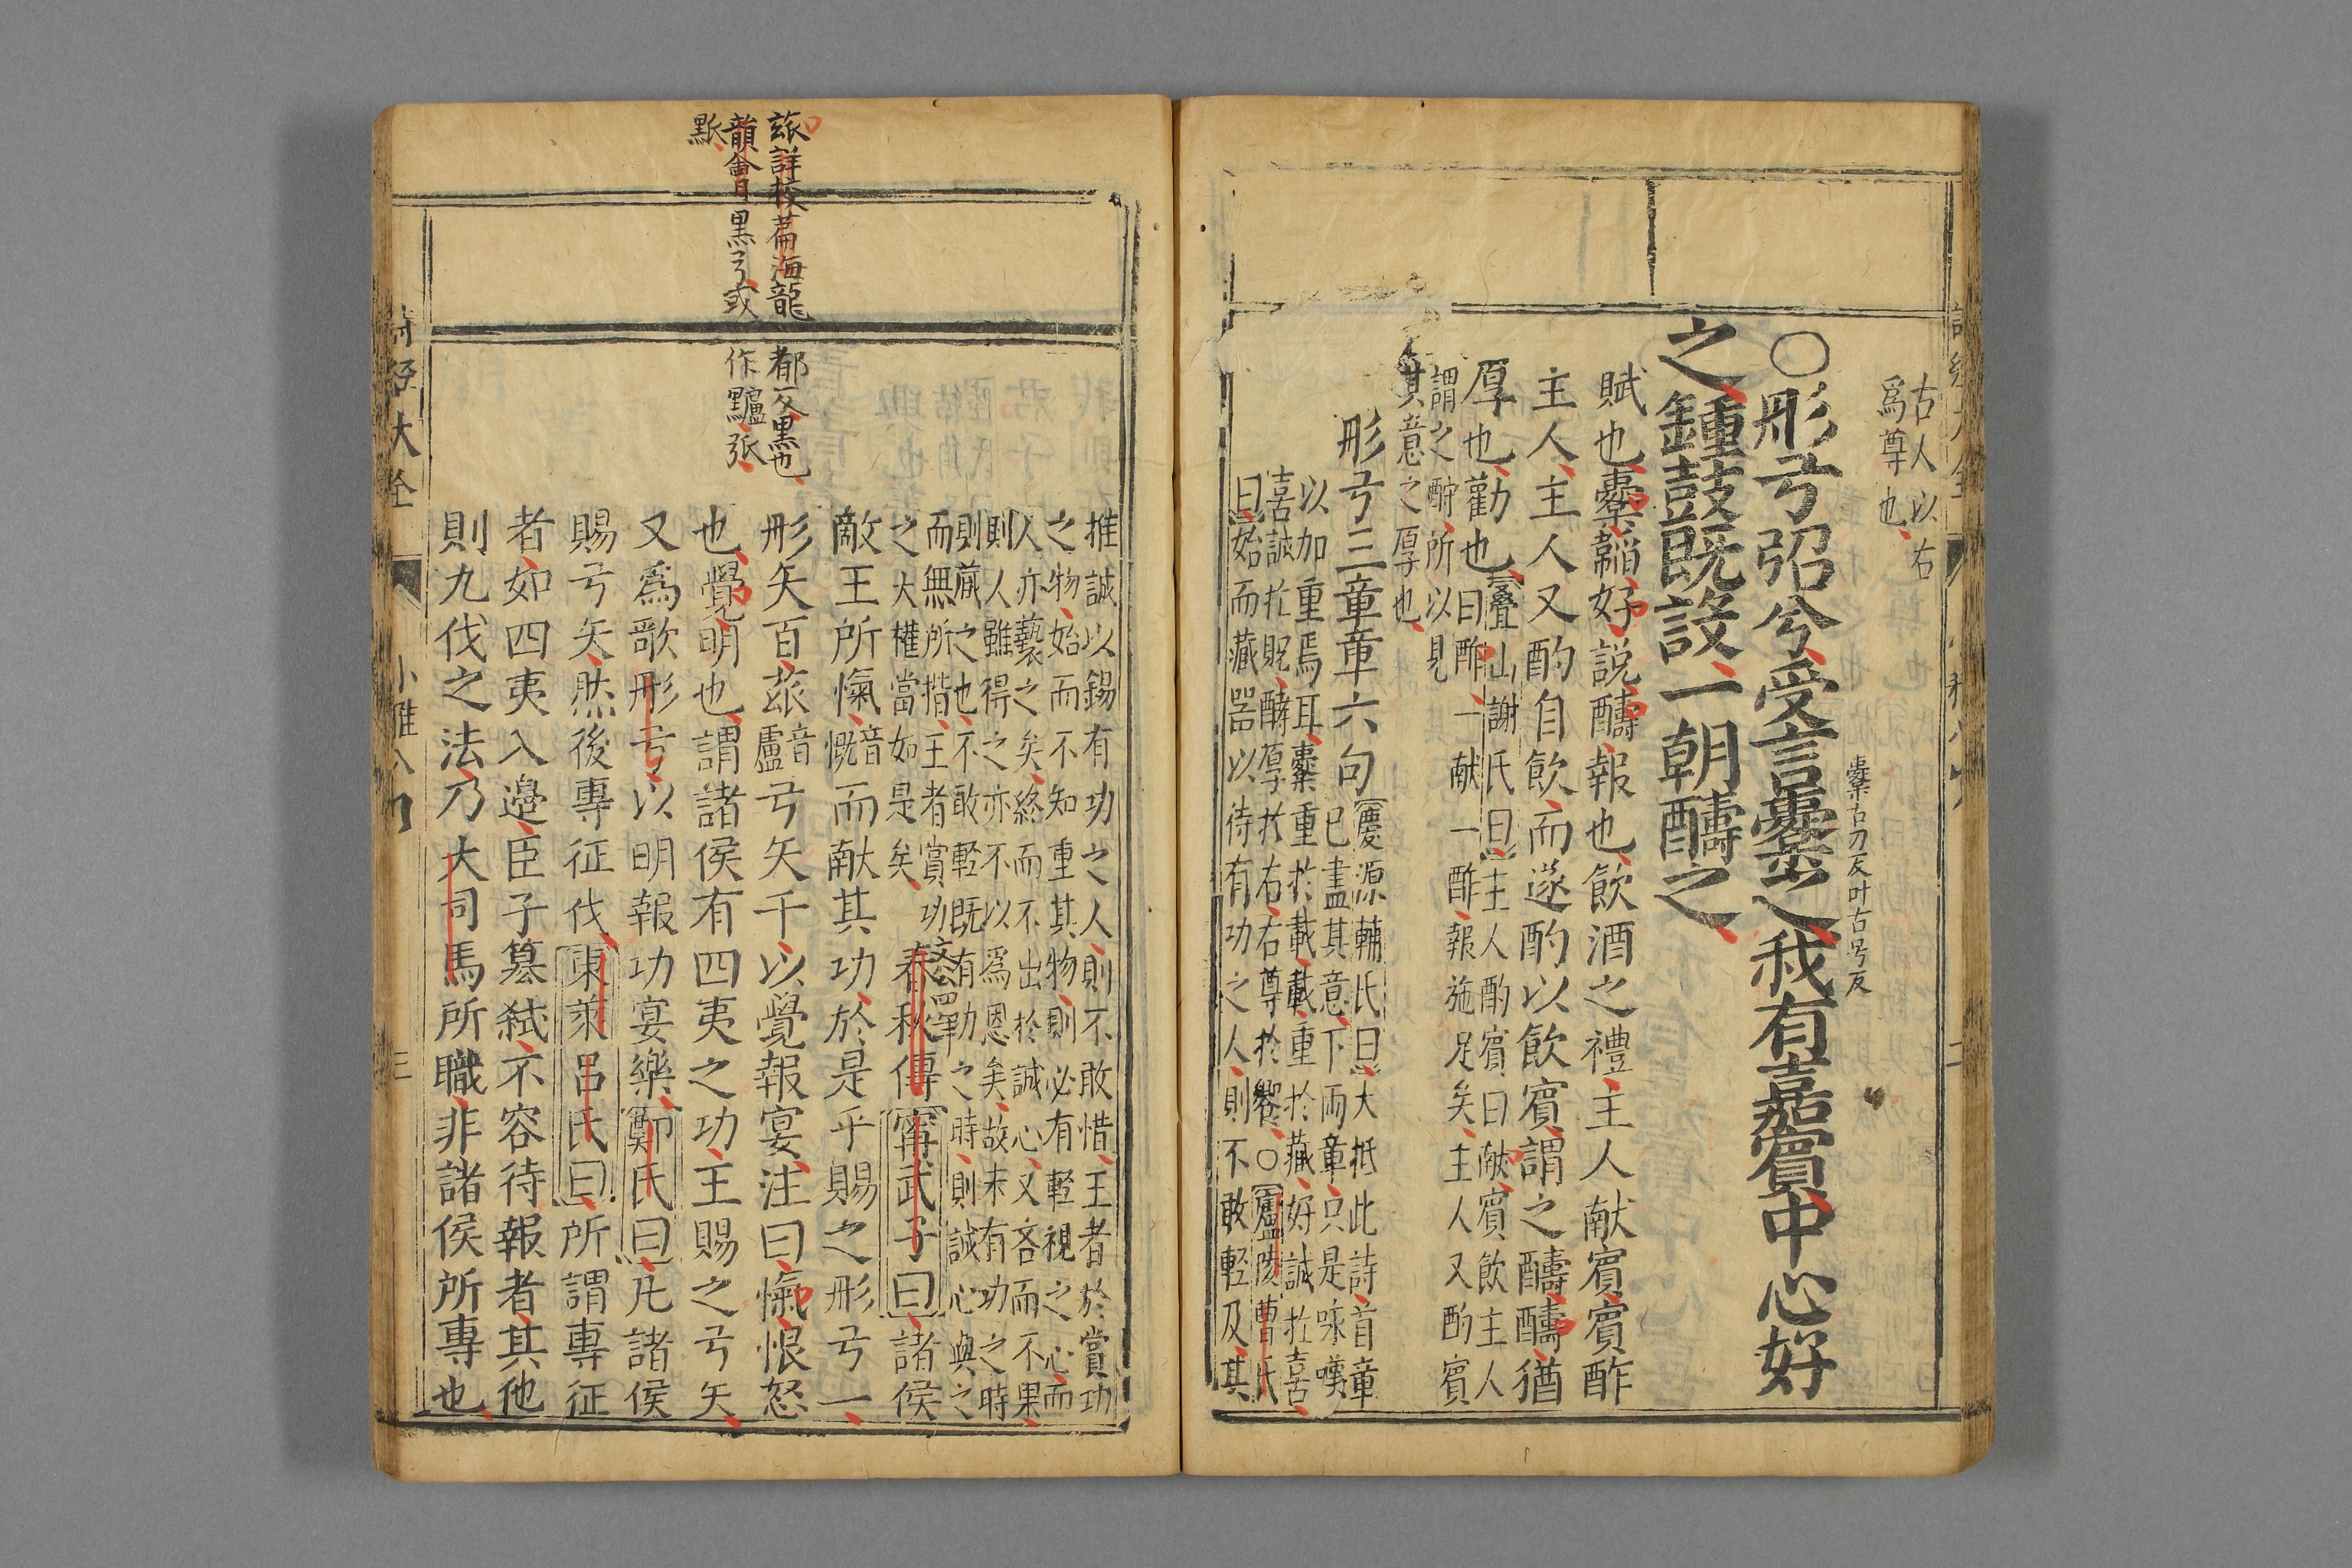 古人以右
爲尊也
○彤弓弨兮受言櫜之我有嘉賓中心好
櫜古刀反叶古号反
之鍾鼓既設一朝醻之
賦也櫜韜好説醻報也飲酒之禮主人献賓賓酢
主人主人又酌自飲而遂酌以飲賓謂之醻醻猶
厚也勸也
疊山謝氏曰主人酌賓曰献賓飲主人
曰酢一献一酢報施足矣主人又酌賓
謂之酧所以見
其意之厚也
彤弓三章章六句
慶源輔氏曰大抵此詩首章
已盡其意下兩章只是咏嘆
以加重焉耳櫜重於載載重於藏好誠於喜
喜誠於貺醻厚於右右尊於饗○廬陵曹氏
曰始而藏器以待有功之人則不敢輕及其
推誠以錫有功之人則不敢惜王者於賞功
之物始而不知重其物則必有輕視之心而
人亦藝之矣終而不出於誠心又吝而不果
則人雖得之亦不以爲恩矣故未有功之時
則藏之也不敢輕既有功之時則誠心與之
而無所惜王者賞功
之大權當如是矣
春秋傳
文四年
寗武子曰諸侯
敵王所愾
音
慨
而献其功於是乎賜之彤弓一
彤矢百玈
音
盧
弓矢千以覺報宴注曰愾恨怒
也覺明也謂諸侯有四夷之功王賜之弓矢
又爲歌彤弓以明報功宴樂鄭氏曰凡諸侯
賜弓矢然後專征伐東萊呂氏曰所謂專征
者如四夷入邉臣子簒弑不容待報者其他
則九伐之法乃大司馬所職非諸侯所專也
玈詳校萹海龍
都反黑也
韻會日黒弓或
作黸張
詩經大全
小雅八
三